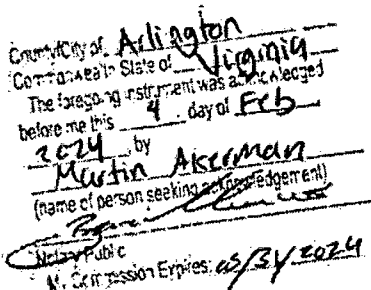 County/City of Arlington
Commonwealth State of Virginia
The foregoing instrument was acknowledged
before me this 4 day of Feb
2024, by
Martin Akerman
(name of person seeking acknowledgement)
Notary Public
My Commission Expires: 05/31/2024